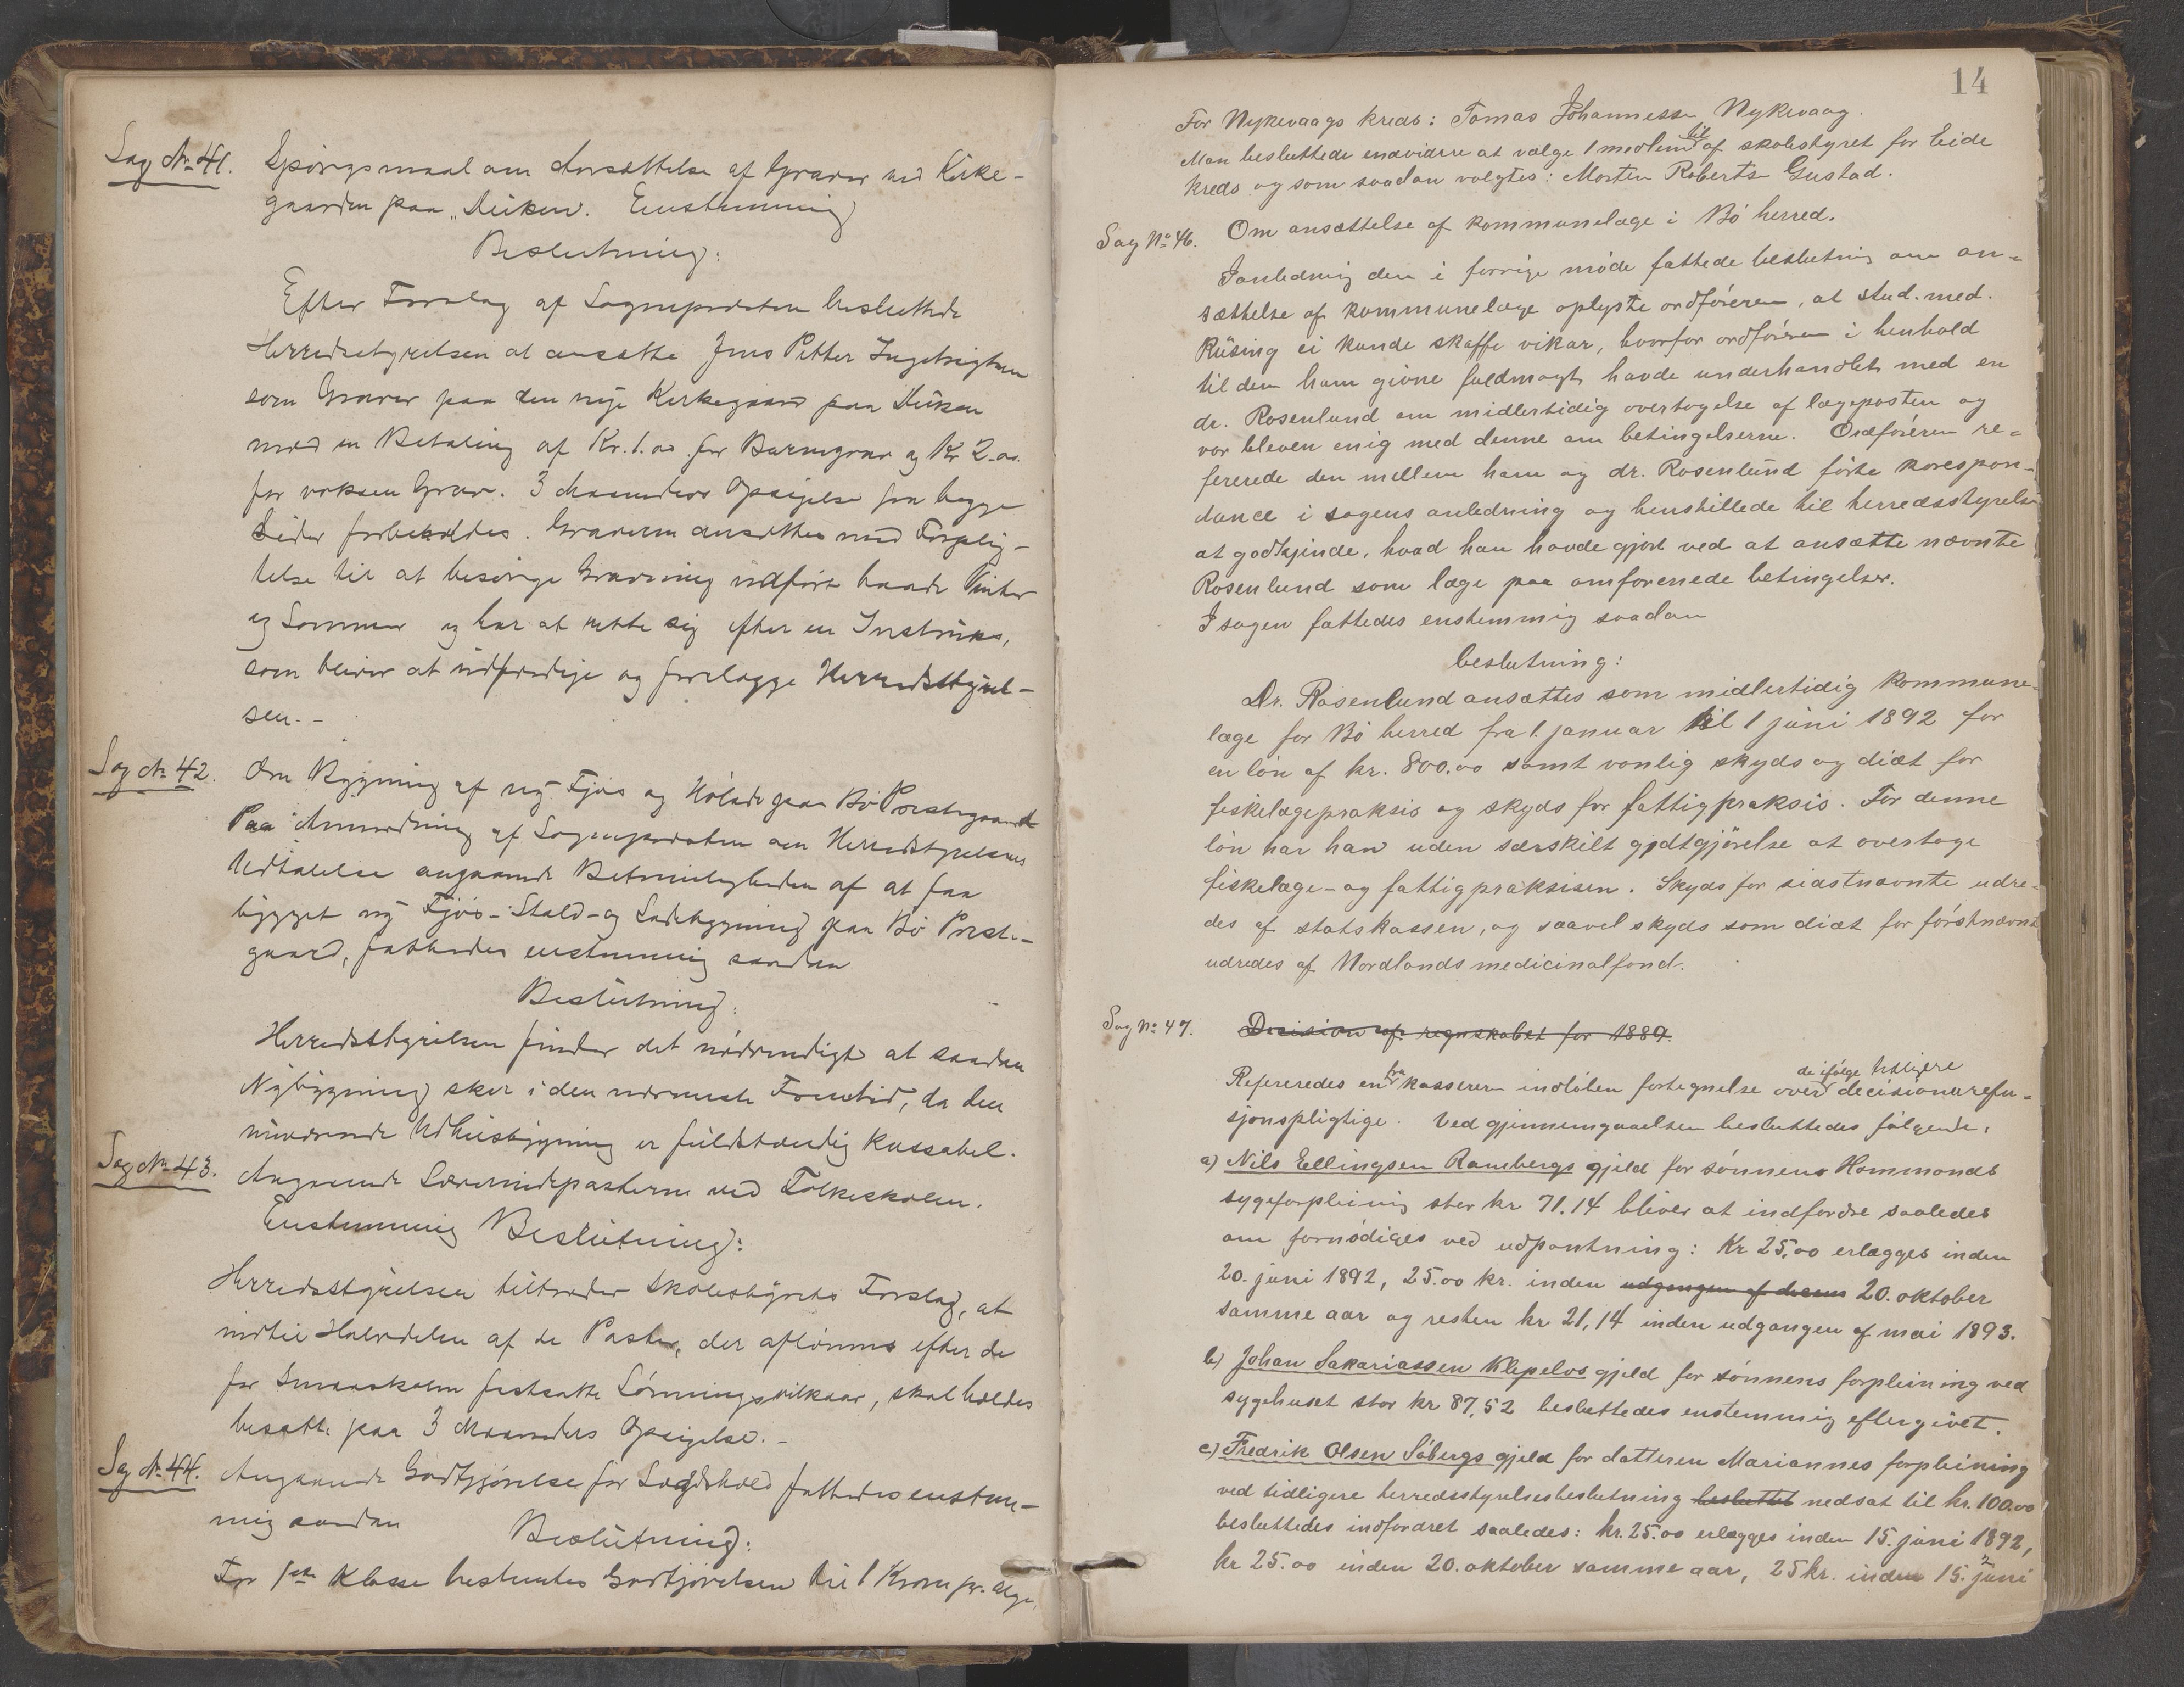 Sag No 41. Spörgsmaal om Ansættelse af Graver ved Kirke-
gaarden paa "Auken. Enstemmig
Beslutning:
Efter Forslag af Sognepresten besluttede
Herredsstyrelsen at ansætte Jens Petter Ingebrigtsen
som Graver paa den nye Kirkegaard paa Auken
med en Betaling af Kr. 1.00 for Barnegrav og Kr 2.00
for voksen Grav. 3 Maaneders Opsigelse fra begge
Sider forbeholdes. Graveren ansættes med Forplig-
telse til at besörge Gravning udfört baade Vinter
og Sommer og har at rette sig efter en Instruks,
som bliver at udfærdige og forelægge Herredsstyrel-
sen. -
Sag No 42. Om Bygning af ny Fjös og Hölade paa Bö Prestegaard
Paa Anmodning af Sognepresten om Herredsstyrelsens
Udtalelse angaaende Betimeligheden af at faa
bygget ny Fjös-Stald-og Ladebygning paa Bö Preste-
gaard, fattedes enstemmig saadan
Beslutning:
Herredsstyrelsen finder det nödvendigt at saadan
Nybygning sker i den nærmeste Fremtid, da den
nuværende Udhusbygning er fuldstændig kassabel.
Sag No 43. Angaaende Lærerindeposterne ved Folkeskolen.
Enstemmig Beslutning:
Herredsstyrelsen tiltræder Skolestyrets Forslag, at
indtil Halvdelen af de Poster, der aflönnes efter de
for Smaaskolen fastsatte Lönningsvilkaar, skal holdes
besatte paa 3 Maaneders Opsigelse. -
Sag No 44. Angaaende Godtgjörelse for Lægdshold fattedes enstem-
mig saadan Beslutning:
For 1ste Klasse bestemtes Godtgjörelsen til 1 Krone pr. Uge,
14
For Nykevaags kreds: Tomas Johannessen Nykvaag.
Man besluttede endvidere at vælge 1 medlem til af skolestyret for Eide
kreds og som saadan valgtes: Morten Roberts Gustad.
Sag No 46. Om ansættelse af kommunelæge i Bö herred.
I anledning den i forrige möde fattede beslutning om an-
sættelse af kommunelæge oplyste ordföreren, at stud. med.
Küsing ei kunde skaffe vikar, hvorfor ordföreren i henhold
til den ham givne fuldmagt havde underhandlet med en
dr. Rosenlund om midlertidig overtagelse af lægeposten og
var bleven enig med denne om betingelserne. Ordföreren re-
fererede den mellem ham og dr. Rosenlund förte korespon-
dance i sagens anledning og henstillede til herredsstyrelsen
at godkjende, hvad han havde gjort ved at ansætte nævnte
Rosenlund som læge paa omforenede betingelser.
I sagen fattedes enstemmig saadan
beslutning:
Dr. Rosenlund ansættes som midlertidig kommune-
læge for Bö herred fra 1. januar til 1 juni 1892 for
en lön af kr. 800.00 samt vanlig skyds og diæt for
fiskelægepraksis og skyds for fattigpraksis. For denne
lön har han uden særskilt godtgjörelse at overtage
fiskelæge- og fattigpraksisen. Skyds for sidstnævnte udre-
des af statskassen, og saavel skyds som diæt for förstnævnte
udredes af Nordlands medicinalfond.
Sag No 47. Decision af regnskabet for 1889.
Refereredes en fra kasseren indlöben fortegnelse over de ifölge tidligere decisioner refu-
sjonspligtige. Ved gjennemgaaelsen besluttedes fölgende:
a) Nils Ellingsen Rambergs gjeld for sönnens Hammonds
sygeforpleining stor kr 71.14 bliver at indfordre saaledes
om fornödiges ved udpantning: Kr 25,00 erlægges inden
20. juni 1892, 25.00 kr. inden udgangen af denne 20. oktober
samme aar og resten kr 21,14 inden udgangen af mai 1893.
b) Johan Sakariassen Klepelvs gjeld for sönnens forpleining ved
sygehuset stor kr 87,52 besluttedes enstemmig eftergivet.
c) Fredrik Olsen Söbergs gjeld for datteren Mariannes forpleining
ved tidligere herredsstyrelsesbeslutning besluttet nedsat til kr. 100.00
besluttedes indfordret saaledes: kr. 25.00 erlægges inden 15. juni 1892,
kr 25.00 inden 20. oktober samme aar, 25 kr. inden 15. juni